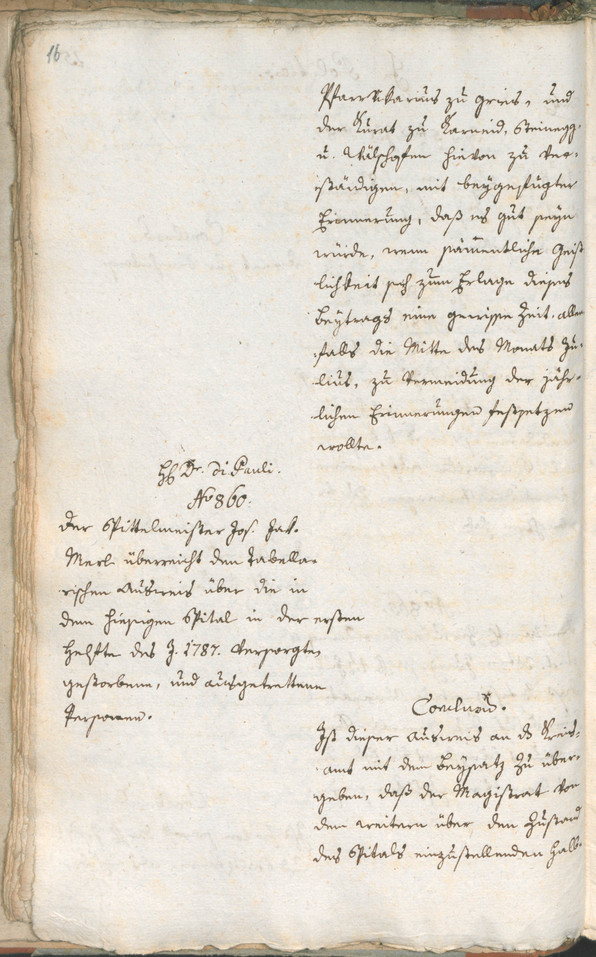 16
Pfarrvikarius zu Gries, und
der Kurat zu Karneid, Steinegg
u. Wälschofen hievon zu ver-
ständigen, mit beygefügter
Erinnerung, daß es gut seyn
würde, wenn sämentliche Geist
lichkeit sich zum Erlage dieses
Beytrags eine gewisse Zeit, allen
falls die Mitte des Monats Ju-
lius, zu Vermeidung der jähr-
lichen Erinnerungen festsetzen
wollte.
H. Dr. Di Pauli.
No 860.
Der Spittelmeister Jos. Jak.
Merl überreicht den Tabella-
rischen Ausweis über die in
dem hiesigen Spital in der ersten
Helfte des J. 1787. Versorgte,
gestorbene, und ausgetrettene
Personen.
Conclusum.
Ist dieser Ausweis an das Kreis-
amt mit dem Beysatz zu über-
geben, daß der Magistrat von
dem weitern über den Zustand
des Spitals einzustellenden Halb-